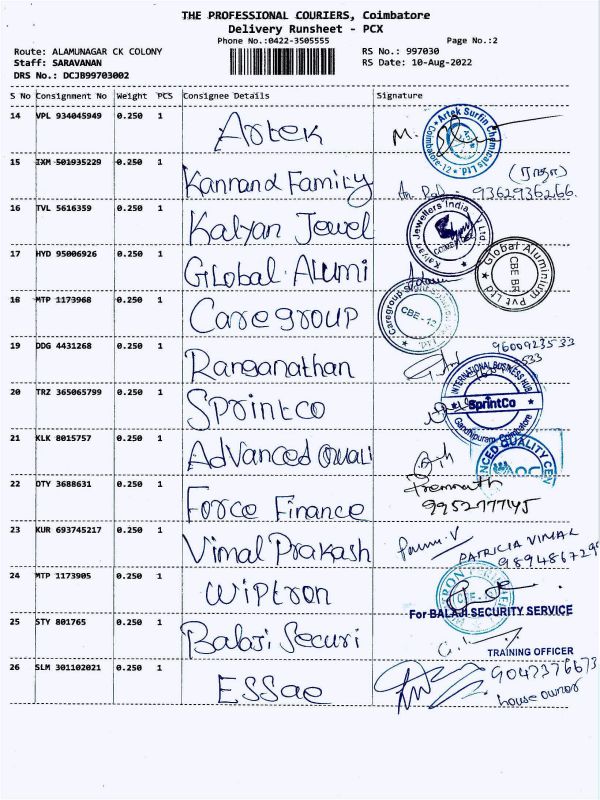 THE PROFESSIONAL COURIERS, Coimbatore
Delivery Runsheet - PCX
Phone No.:0422-3505555
Page No.:2
Route: ALAMUNAGAR CK COLONY
RS No.: 997030
Staff: SARAVANAN
RS Date: 10-Aug-2022
DRS No.: DCJB99703002
S No Consignment No Weight PCS Consignee Details Signature
14 VPL 934045949 0.250 1 Artek M.
Artek Surfin Chemicals Ltd. Coimbatore-12
15 IXM 501935229 0.250 1 Kannand Family
(ராதா)
9362936266.
16 TVL 5616359 0.250 1 Kalyan Jewel
Kalyan Jewellers India Ltd.
17 HYD 95006926 0.250 1 Global Alumi
Global Aluminium Pvt Ltd
CBE BR
18 MTP 1173968 0.250 1 Caregroup
CBE-12
19 DDG 4431268 0.250 1 Ranganathan
9600923533
533
20 TRZ 365065799 0.250 1 Sprintco
INTERNATIONAL BUSINESS HUB
SprintCo
Gandhipuram, Coimbatore
21 KLK 8015757 0.250 1 Advanced Quali
NCED QUALITY CEN
22 DTY 3688631 0.250 1 Force Finance
Premnath
9952777145
23 KUR 693745217 0.250 1 Vimal Prakash
PATRICIA VIMAL
989486729
24 MTP 1173905 0.250 1 Wiptron
For BALAJI SECURITY SERVICE
25 STY 801765 0.250 1 Balaji Securi
TRAINING OFFICER
26 SLM 301102021 0.250 1 ESSae
9047376673
house owner